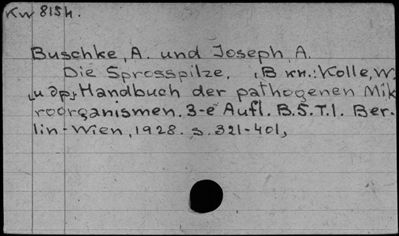 Kw 815h.
Buschke, A. und Joseph, A.
Die Sprosspilze. (В кн.: Kolle, W.
и др. Handbuch der pathogenen Mik
roorganismen. 3-e Aufl. B.5.T.1. Ber-
lin-Wien, 1928. s. 321-401,